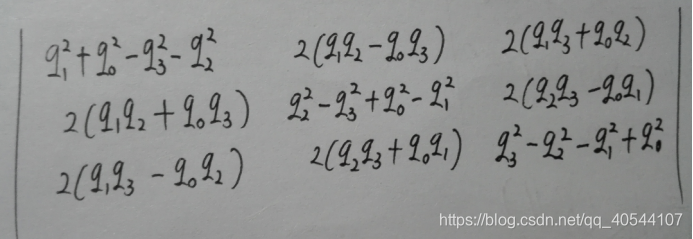 q₁² + q₀² − q₃² − q₂² 2(q₁q₂ − q₀q₃) 2(q₁q₃ + q₀q₂)
2(q₁q₂ + q₀q₃) q₂² − q₃² + q₀² − q₁² 2(q₂q₃ − q₀q₁)
2(q₁q₃ − q₀q₂) 2(q₂q₃ + q₀q₁) q₃² − q₂² − q₁² + q₀²
https://blog.csdn.net/qq_40544107